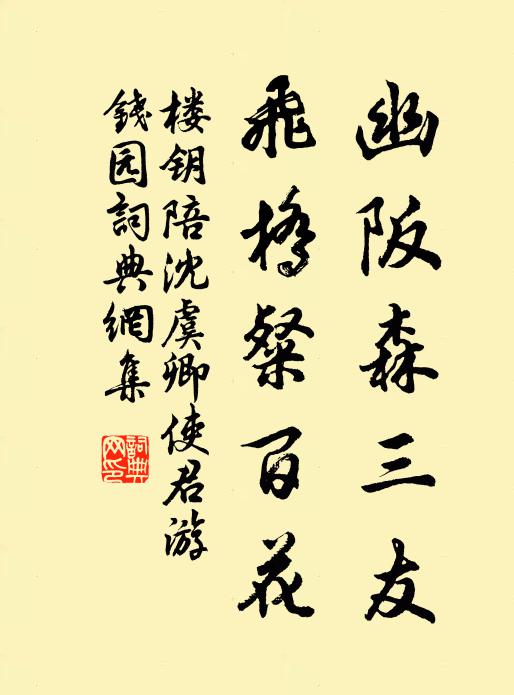 幽阪森三友
飛橋粲百花
楼钥陪沈虞卿使君游
錢园詞典網集
詞典网印